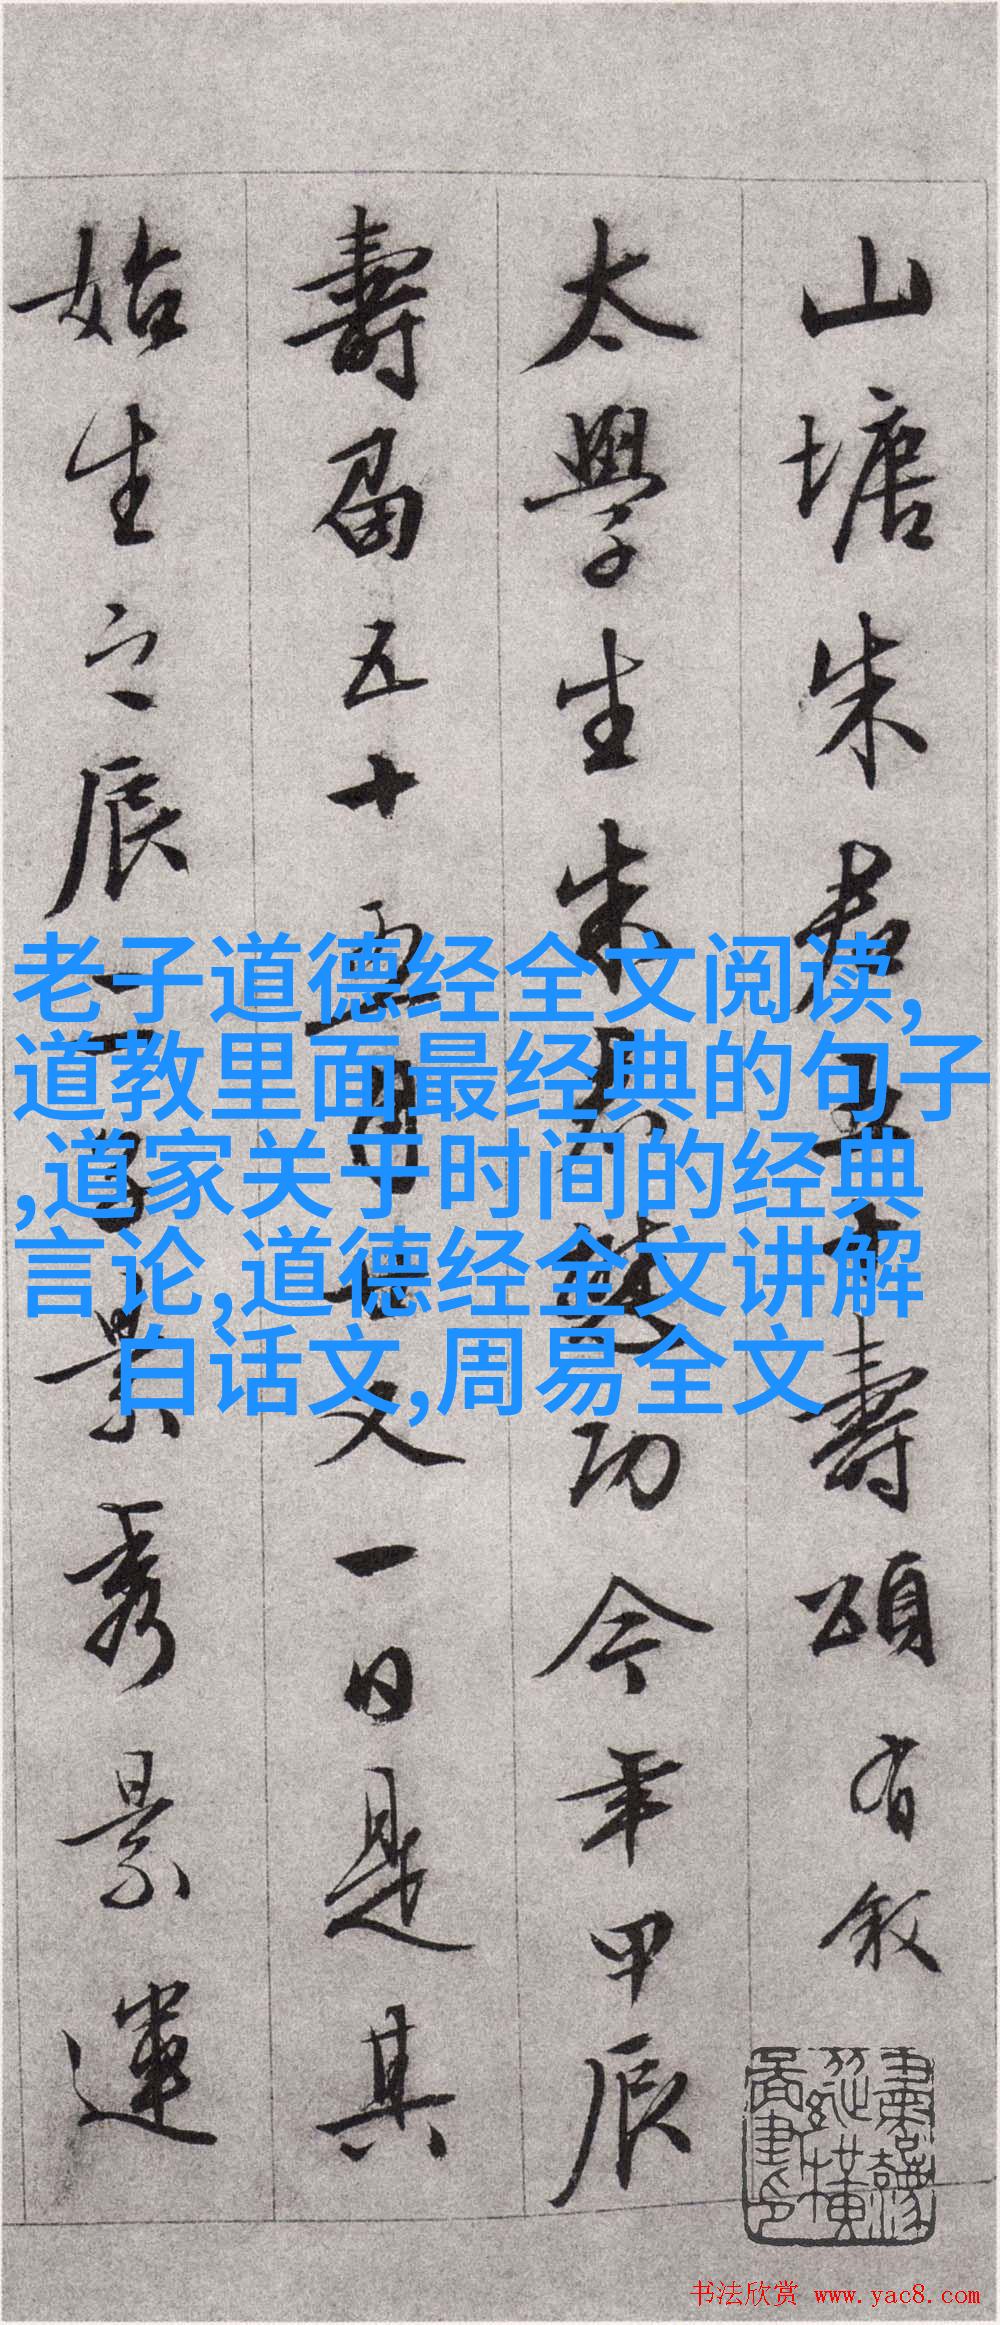 山塘朱君五十壽頌有叙
太學生朱君懋功今年甲辰
壽届五十月又一日是其
始生之辰景秀景運
老子道德经全文阅读,
道教里面最经典的句子
,道家关于时间的经典
言论,道德经全文讲解
白话文,周易全文
书法欣赏 www.yac8.com